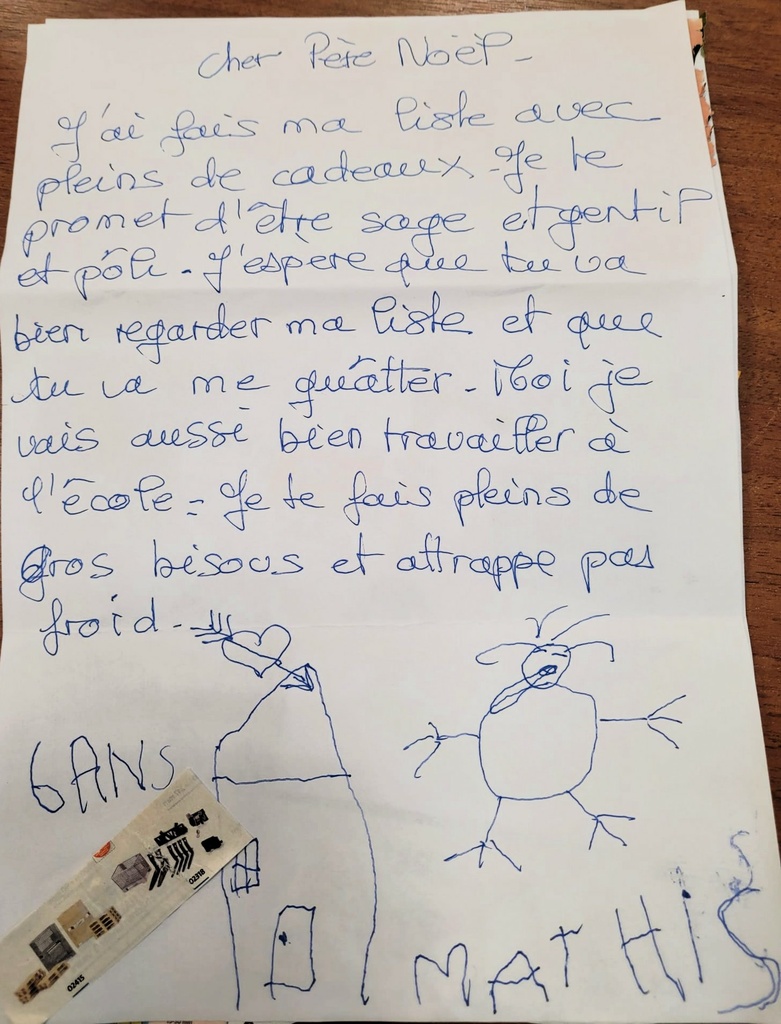 cher Père Noël-
J'ai fais ma liste avec
pleins de cadeaux. Je te
promet d'être sage et gentil
et pôli - J'espère que tu va
bien regarder ma liste et que
tu va me guâtter - Moi je
vais aussè bien travailler à
l'école - Je te fais pleins de
gros bisous et attrappe pas
froid -
6 ANS
02318
02415
MATHIS